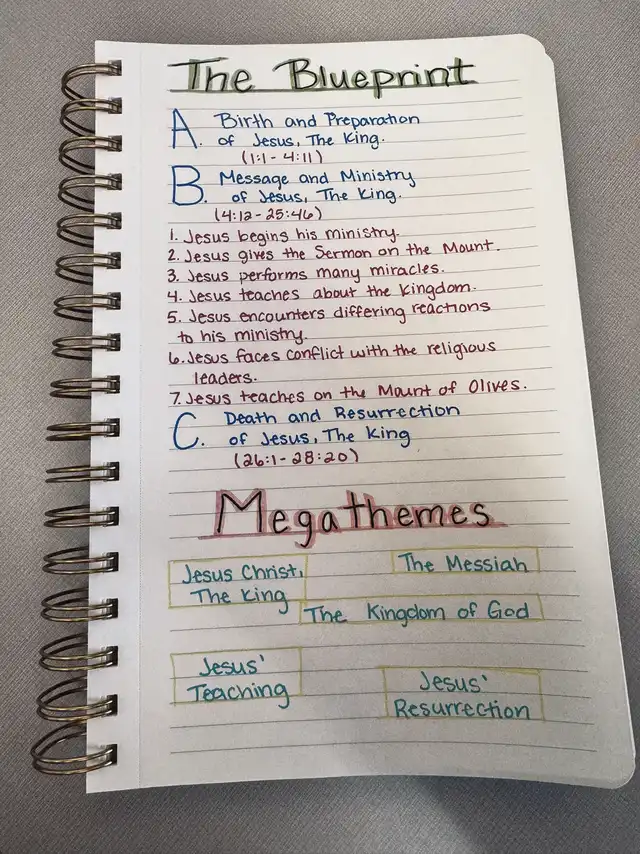 The Blueprint
A. Birth and Preparation
of Jesus, The King.
(1:1 - 4:11)
B. Message and Ministry
of Jesus, The King.
(4:12 - 25:46)
1. Jesus begins his ministry.
2. Jesus gives the Sermon on the Mount.
3. Jesus performs many miracles.
4. Jesus teaches about the Kingdom.
5. Jesus encounters differing reactions
to his ministry.
6. Jesus faces conflict with the religious
leaders.
7. Jesus teaches on the Mount of Olives.
C. Death and Resurrection
of Jesus, The King
(26:1 - 28:20)
Megathemes
Jesus Christ,
The King
The Messiah
The Kingdom of God
Jesus'
Teaching
Jesus'
Resurrection